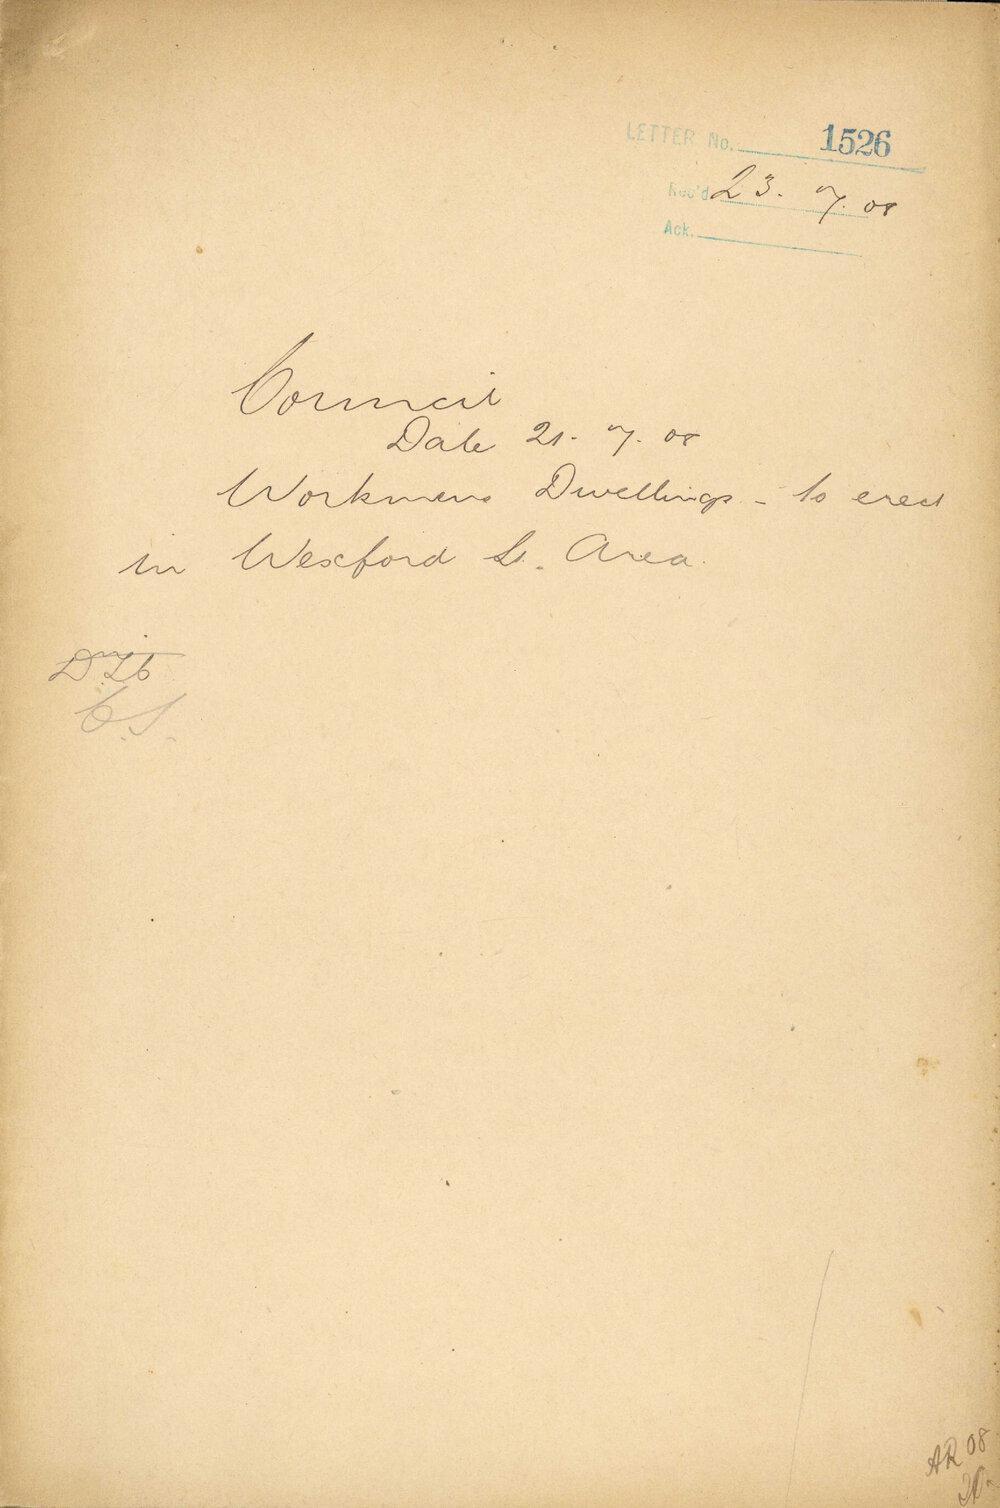 LETTER No. 1526
Rec'd 23. 7. 08
Ack.
Council
Date 21. 7. 08
Workmens Dwellings - to erect
in Wexford St. Area.
C.S.
AR 08